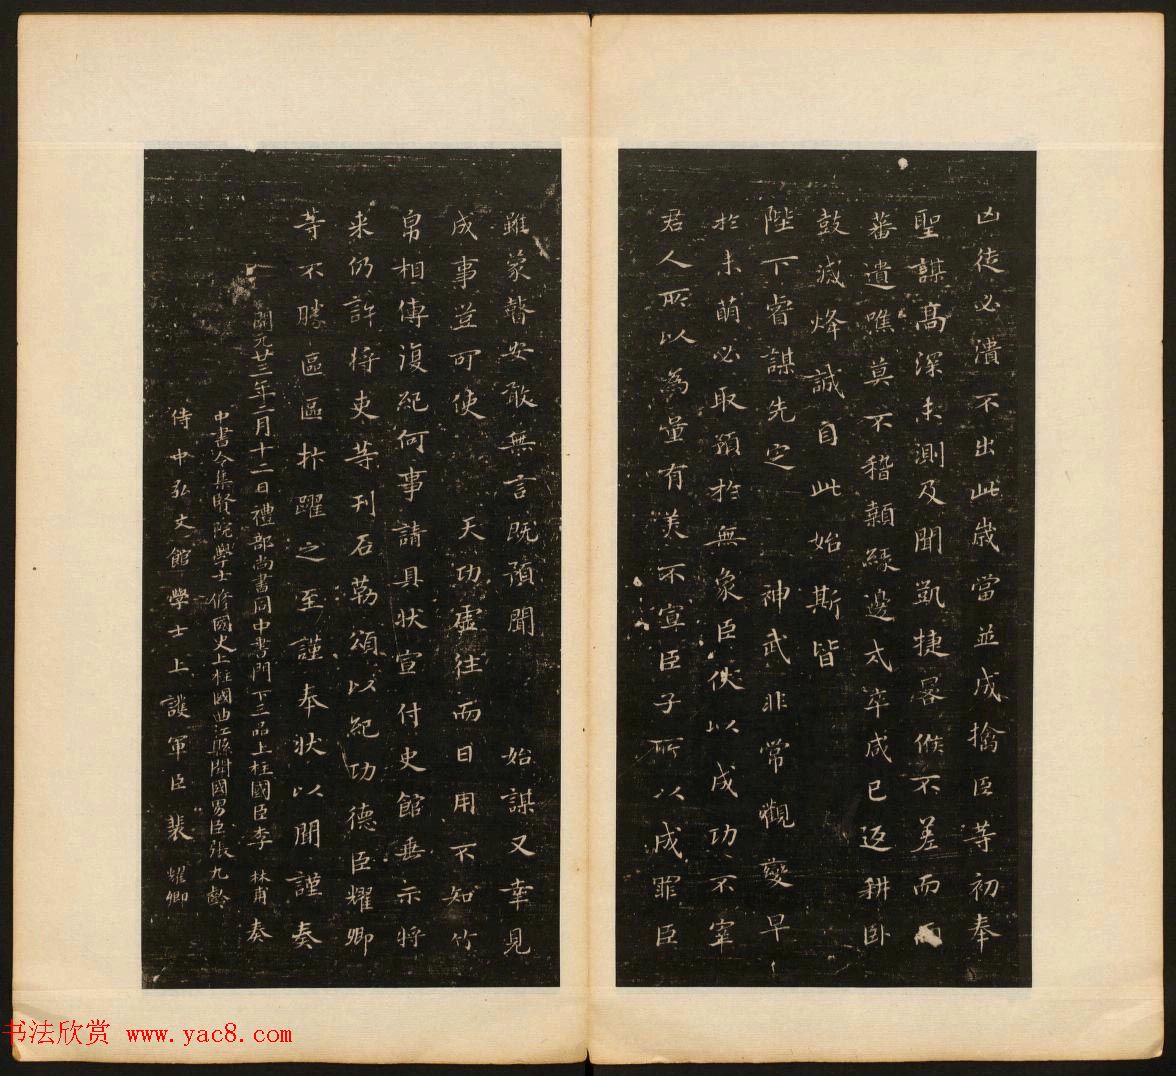 凶徒必潰不出此歲當並成擒臣等初奉
聖謀高深未測及聞凱捷晷候不差而兩
蕃遺噍莫不稽顙緣邊戍卒咸已返耕臥
鼓滅烽誠自此始斯皆
陛下睿謀先定 神武非常觀變早
於未萌必取預於無象臣伏以成功不宰
君人所以為量有美不宣臣子所以成罪臣
雖蒙瞽安敢無言既預聞 始謀又幸見
成事豈可使 天功虛往而日用不知竹
帛相傳復紀何事請具狀宣付史館垂示將
来仍許将吏等刊石勒頌以紀功德臣耀卿
等不勝區區抃躍之至謹奉狀以聞謹奏
開元廿三年二月十二日禮部尚書同中書門下三品上柱國臣李林甫奏
中書令集賢院學士修國史上柱國曲江縣開國男臣張九齡
侍中弘文館學士上護軍臣裴耀卿
书法欣赏 www.yac8.com